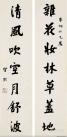 雜花妝林草蓋地
清風吹空月舒波